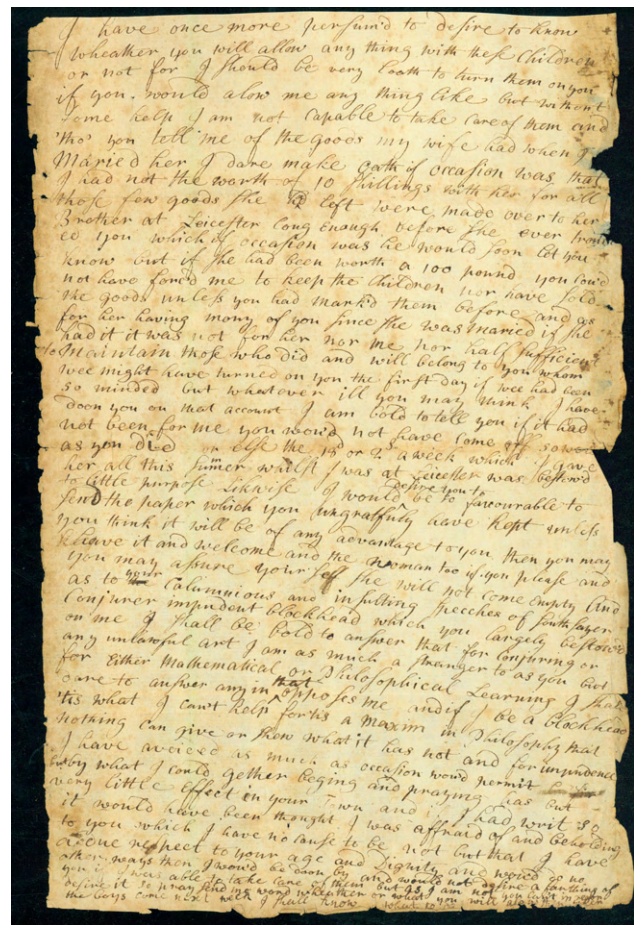 I have once more persum'd to desire to know
wheather you will allow any thing with these Children
or not for I should be very loath to turn them on you
if you would alow me any thing like but without
some help I am not Capable to take care of them and
tho' you tell me of the goods my wife had when I
Maried her I dare make oath if occasion was that
I had not the worth of 10 shillings with her for all
those few goods she left were made over to her
Brother at Leicester long enough before she ever
ed you which if occasion was he would soon let you
know but if she had been worth a 100 pound you could
not have forc'd me to keep the Children nor have sold
the goods unless you had mark'd them before and as
for her having mony of you since she was maried if she
had it it was not for her nor me nor half sufficient
to Maintain those who did and will belong to you whom
wee might have turned on you the first day if wee had been
so minded but whatever ill you may think I have
doon you on that account I am bold to tell you if it had
not been for me you wou'd not have come off so well
as you did or else the 18 or 2s a week which I gave
her all this sumer whilst I was at Leicester was bestow'd
to little purpose Likwise I would desire you to be so favourable to
send the paper which you ungratfuly have kept unless
you think it will be of any advantage to you then you may
leave it and welcome and the woman too if you please and
you may assure your self she will not come Empty and
as to your Calumnious and insulting speeches of South sayer
Conjurer impudent blockhead which you largely bestow'd
on me I shall be bold to answer that for Conjuring or
any unlawful art I am as much a stranger to as you but
for Either Mathematical or Philosophical Learning I shal
care to answer any opposes me and if I be a blockhead
'tis what I can't help for tis a Maxim in Philosophy that
nothing can give or shew what it has not and for impudence
I have avoided as much as occasion wou'd permit
by what I could gether beging and praying has but
very little effect in your Town and if I had writ so
it would have been thought I was affraid of and beholding
to you which I have no cause to be not but that I have
a due respect to your age and Dignity and wou'd do no
other ways then I wou'd be doon by and would not desire a farthing of
you if I was able to take care of them but as I am not you can't
desire it so pray send me word wheather or what you will
the boys come next week I shall know what to